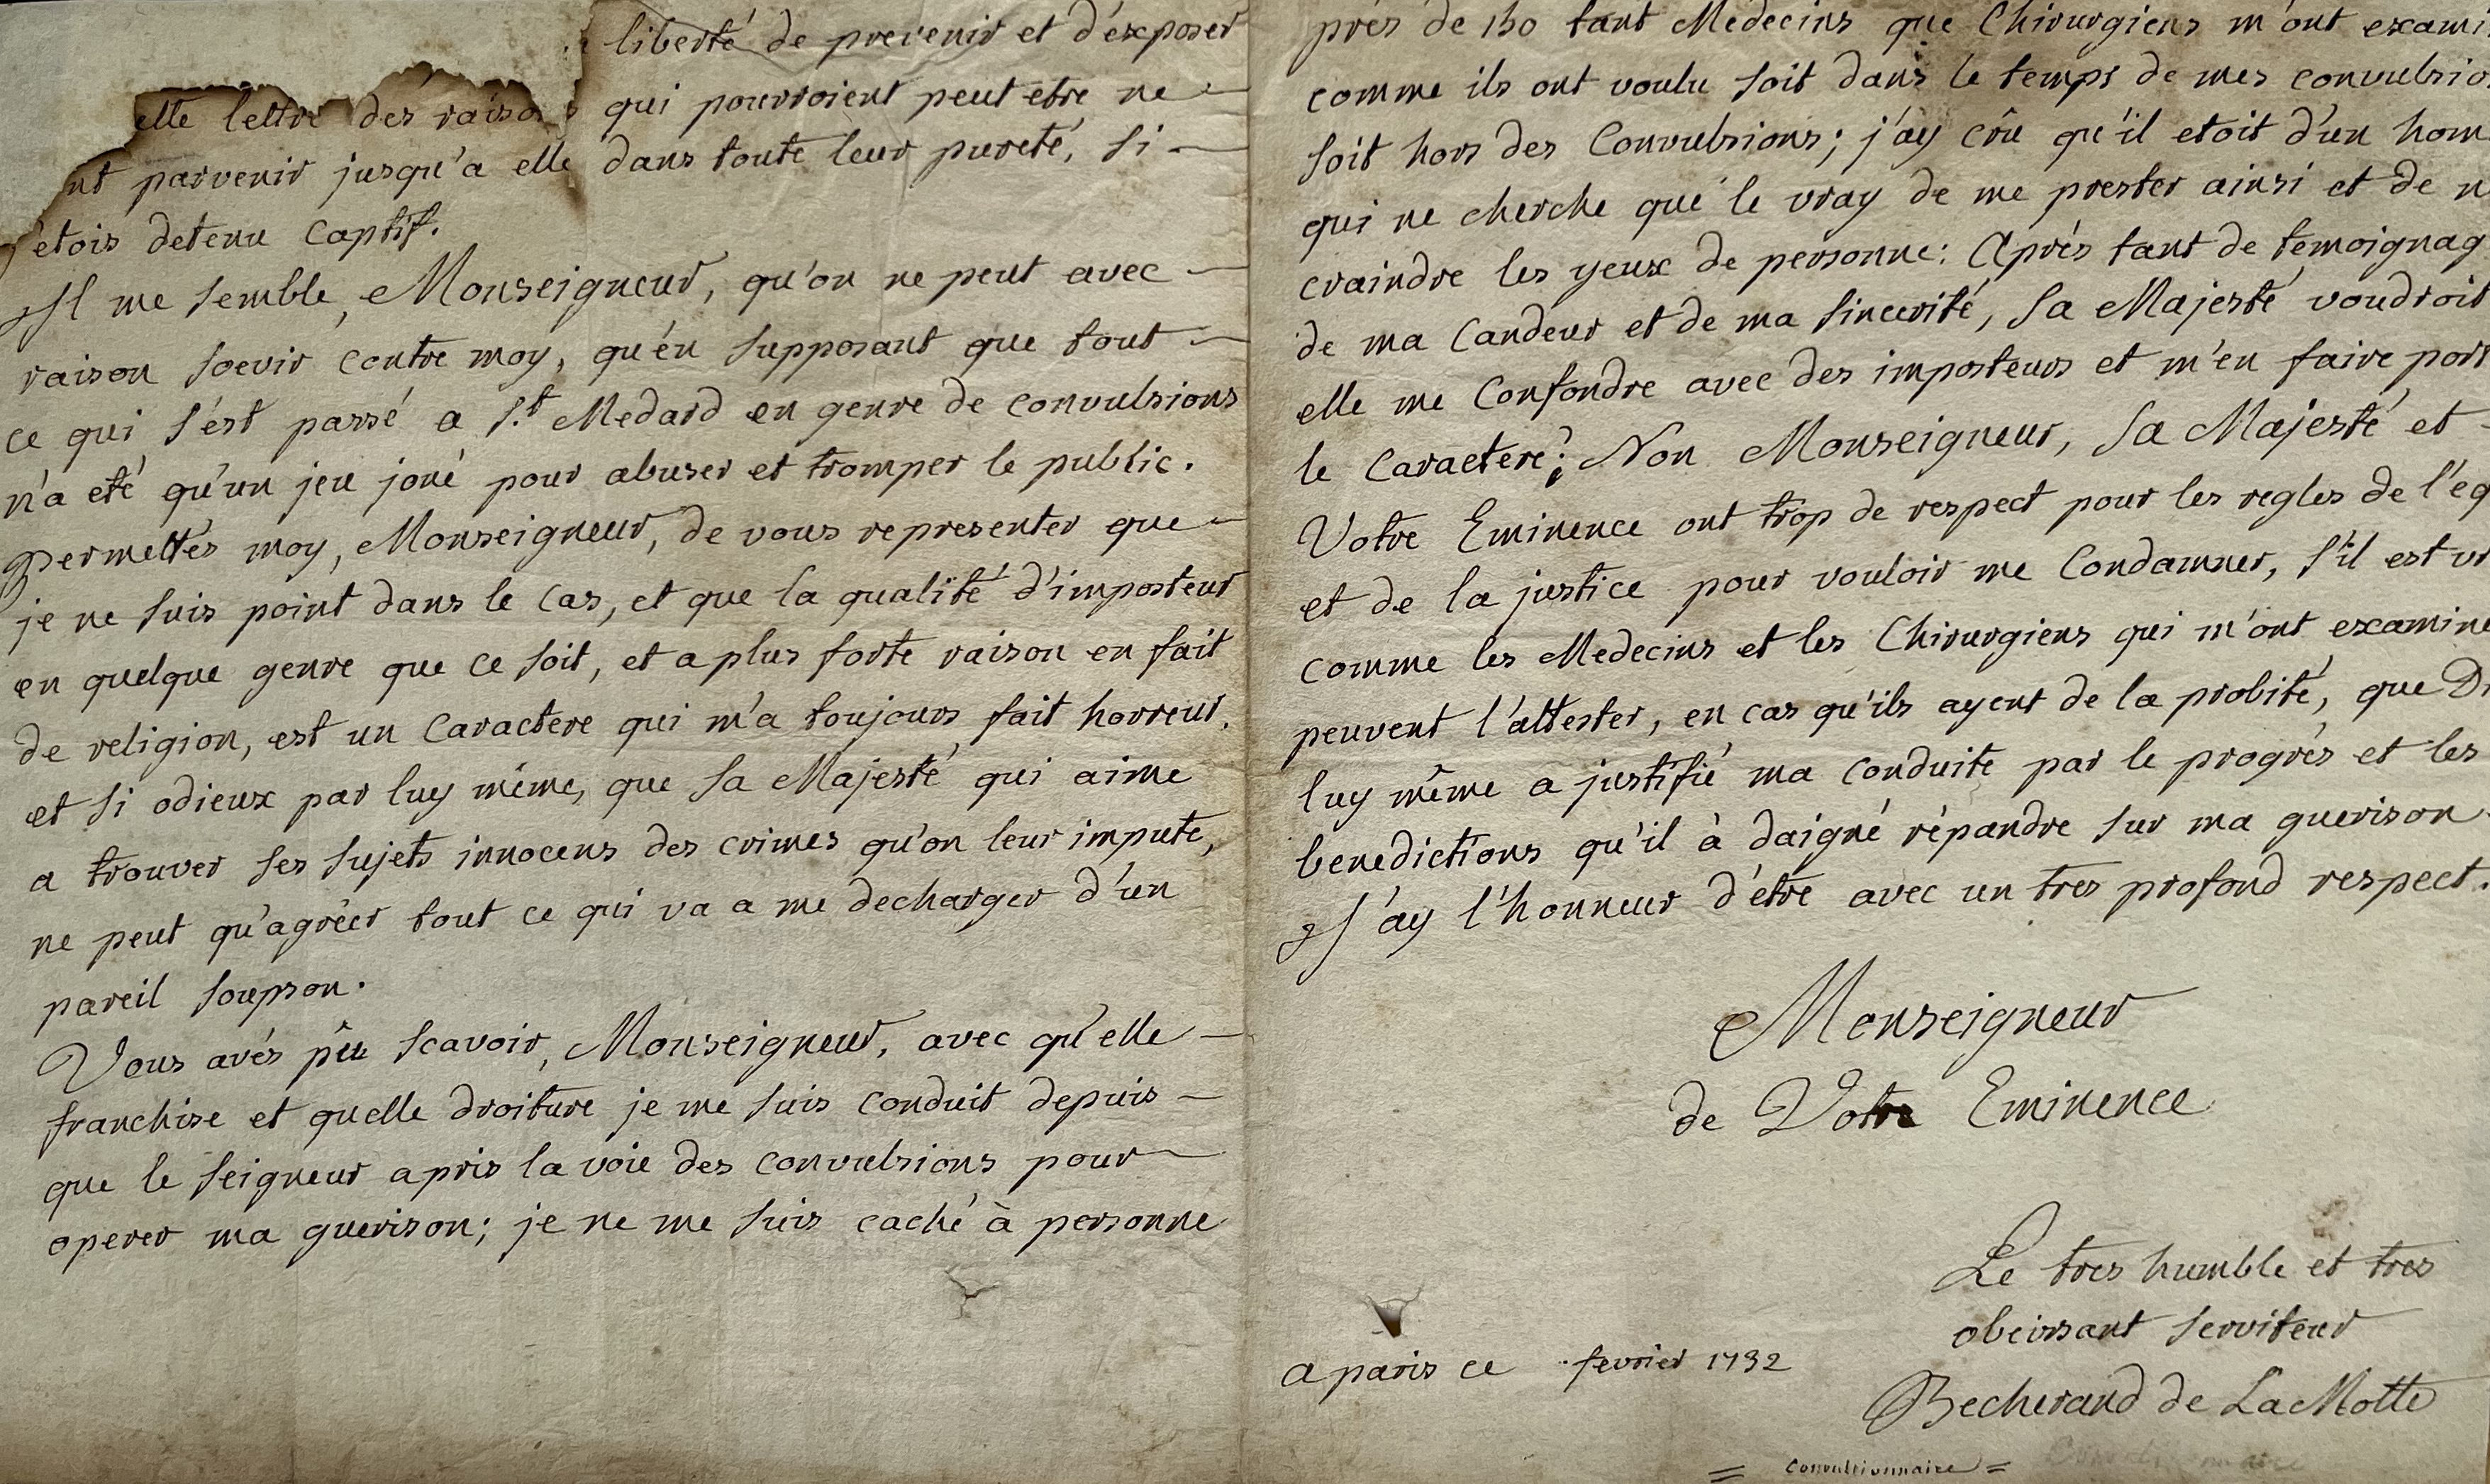 liberté de prevenir et d'éxposer
elle lettre des raisons qui pourroient peut etre ne
nt parvenir jusqu'a elle dans toute leur pureté, si
j'étois detenu Captif.
Il me semble, Monseigneur, qu'on ne peut avec
raison soevir contre moy, qu'én supposant que tout
ce qui s'ést passé a St. Medard en genre de convulsions
n'a eté qu'un jeu joué pour abuser et tromper le public.
Permettés moy, Monseigneur, de vous representer que
je ne suis point dans le Cas, et que la qualité d'imposteur
en quelque genre que ce soit, et a plus forte raison en fait
de religion, est un Caractere qui m'a toujours fait horreur.
et si odieux par luy même, que Sa Majesté qui aime
a trouver ses sujets innocens des crimes qu'on leur impute,
ne peut qu'agréer tout ce qui va a me decharger d'un
pareil soupson.
Vous avés pêu scavoir, Monseigneur, avec qu'elle
franchise et quelle droiture je me suis conduit depuis
que le seigneur a pris la voie des convulsions pour
operer ma guerison; je ne me suis caché à personne
prés de 130 tant Medecins que Chirurgiens m'ont exami
comme ils ont voulu soit dans le temps de mes convulsio
soit hors des Convulsions; j'ay crû qu'il etoit d'un hom
qui ne cherche que le vray de me prester ainsi et de n
craindre les yeux de personne: Aprés tant de temoignag
de ma Candeur et de ma sincerité, Sa Majesté voudroit
elle me Confondre avec des imposteurs et m'en faire port
le Caractere? Non Monseigneur, Sa Majesté et
Votre Eminence ont trop de respect pour les regles de l'éq
et de la justice pour vouloir me Condamner, s'il est vr
comme les Medecins et les Chirurgiens qui m'ont examiné
peuvent l'attester, en cas qu'ils ayent de la probité, que Di
luy même a justifié ma conduite par le progrés et les
benedictions qu'il à daigné répandre sur ma guerison
J'ay l'honneur d'étre avec un tres profond respect.
Monseigneur
de Votre Eminence
Le tres humble et tres
obeissant serviteur
a paris ce fevrier 1732
Becherand de La Motte
= Convultionnaire =